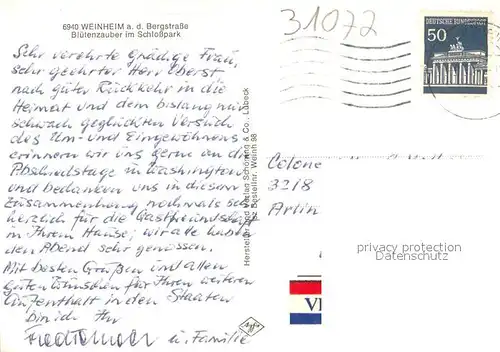 6940 WEINHEIM a. d. Bergstraße
Blütenzauber im Schloßpark
31072
DEUTSCHE BUNDESPOST
50
Sehr verehrte gnädige Frau,
sehr geehrter Herr Oberst
nach guter Rückkehr in die
Heimat und dem bislang nur
schwach geglückten Versuch
des Um- und Eingewöhnens
erinnern wir uns gerne an die
Abschiedstage in Washington
und bedanken uns in diesem
Zusammenhang nochmals sehr
herzlich für die Gastfreundschaft
in Ihrem Hause; wir alle haben
den Abend sehr genossen.
Mit besten Grüßen und allen
guten Wünschen für Ihren weiteren
Aufenthalt in den Staaten
bin ich Ihr
u. Familie
Hersteller und Verlag Schöning & Co., Lübeck
Bestellnr. Weinh 98
Colone
3218
Arlin
privacy protection
Datenschutz
VI
Agfa